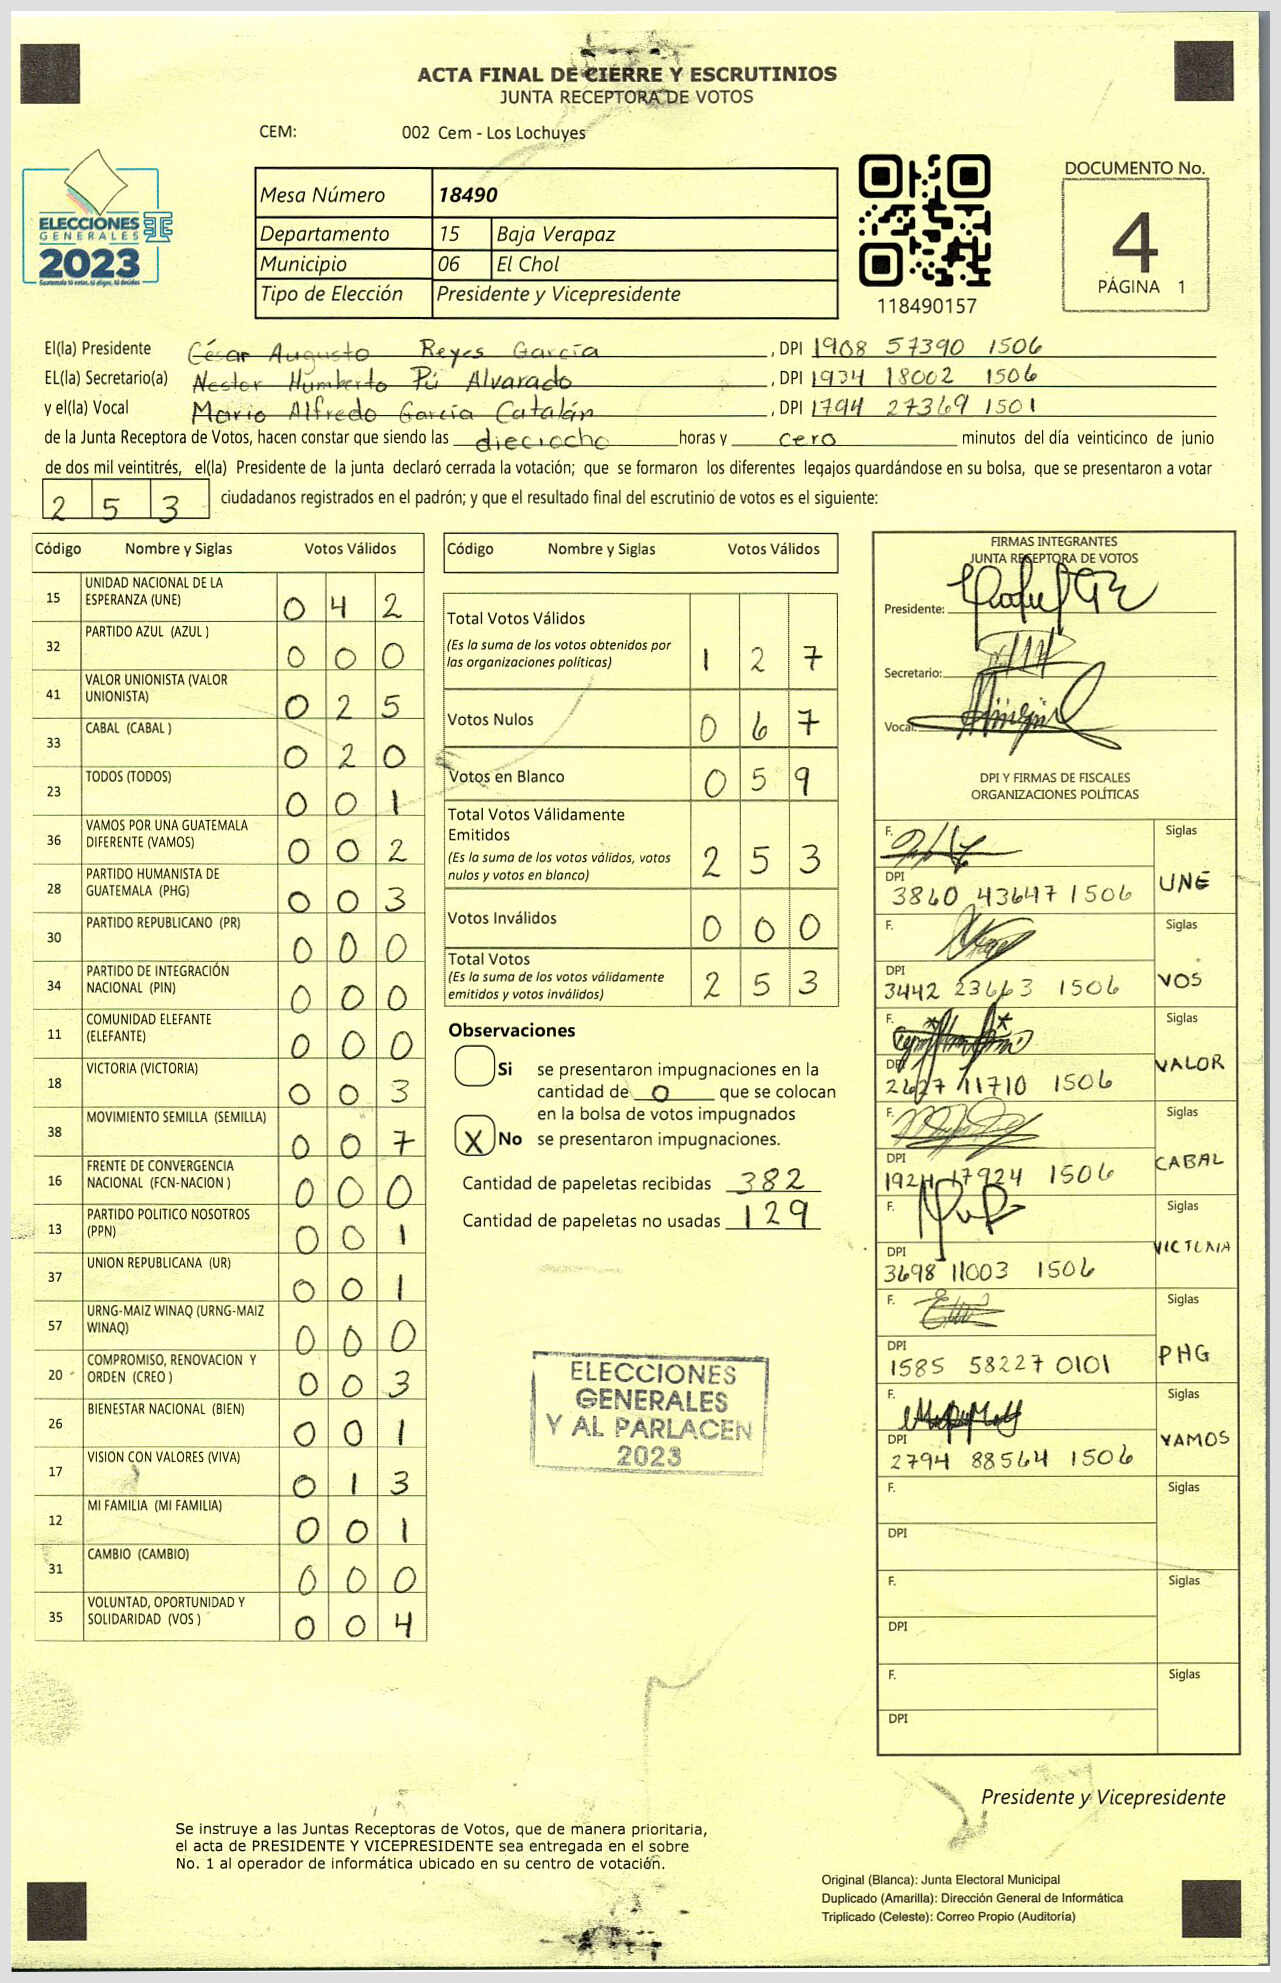 ACTA FINAL DE CIERRE Y ESCRUTINIOS
JUNTA RECEPTORA DE VOTOS
CEM: 002 Cem - Los Lochuyes
ELECCIONES
GENERALES
2023
Mesa Número 18490
Departamento 15 Baja Verapaz
Municipio 06 El Chol
Tipo de Elección Presidente y Vicepresidente
118490157
DOCUMENTO No.
4
PÁGINA 1
El(la) Presidente César Augusto Reyes García, DPI 1908 57390 1506
EL(la) Secretario(a) Nestor Humberto Pú Alvarado, DPI 1934 18002 1506
y el(la) Vocal Mario Alfredo García Catalán, DPI 1794 27369 1501
de la Junta Receptora de Votos, hacen constar que siendo las dieciocho horas y cero minutos del día veinticinco de junio
de dos mil veintitrés, el(la) Presidente de la junta declaró cerrada la votación; que se formaron los diferentes legajos guardándose en su bolsa, que se presentaron a votar
253 ciudadanos registrados en el padrón; y que el resultado final del escrutinio de votos es el siguiente:
Código Nombre y Siglas Votos Válidos
15 UNIDAD NACIONAL DE LA ESPERANZA (UNE) 0 4 2
32 PARTIDO AZUL (AZUL ) 0 0 0
41 VALOR UNIONISTA (VALOR UNIONISTA) 0 2 5
33 CABAL (CABAL ) 0 2 0
23 TODOS (TODOS) 0 0 1
36 VAMOS POR UNA GUATEMALA DIFERENTE (VAMOS) 0 0 2
28 PARTIDO HUMANISTA DE GUATEMALA (PHG) 0 0 3
30 PARTIDO REPUBLICANO (PR) 0 0 0
34 PARTIDO DE INTEGRACIÓN NACIONAL (PIN) 0 0 0
11 COMUNIDAD ELEFANTE (ELEFANTE) 0 0 0
18 VICTORIA (VICTORIA) 0 0 3
38 MOVIMIENTO SEMILLA (SEMILLA) 0 0 7
16 FRENTE DE CONVERGENCIA NACIONAL (FCN-NACION ) 0 0 0
13 PARTIDO POLITICO NOSOTROS (PPN) 0 0 1
37 UNION REPUBLICANA (UR) 0 0 1
57 URNG-MAIZ WINAQ (URNG-MAIZ WINAQ) 0 0 0
20 COMPROMISO, RENOVACION Y ORDEN (CREO ) 0 0 3
26 BIENESTAR NACIONAL (BIEN) 0 0 1
17 VISION CON VALORES (VIVA) 0 1 3
12 MI FAMILIA (MI FAMILIA) 0 0 1
31 CAMBIO (CAMBIO) 0 0 0
35 VOLUNTAD, OPORTUNIDAD Y SOLIDARIDAD (VOS ) 0 0 4
Código Nombre y Siglas Votos Válidos
Total Votos Válidos
(Es la suma de los votos obtenidos por
las organizaciones políticas) 1 2 7
Votos Nulos 0 6 7
Votos en Blanco 0 5 9
Total Votos Válidamente
Emitidos
(Es la suma de los votos válidos, votos
nulos y votos en blanco) 2 5 3
Votos Inválidos 0 0 0
Total Votos
(Es la suma de los votos válidamente
emitidos y votos inválidos) 2 5 3
Observaciones
Si se presentaron impugnaciones en la
cantidad de 0 que se colocan
en la bolsa de votos impugnados
X No se presentaron impugnaciones.
Cantidad de papeletas recibidas 382
Cantidad de papeletas no usadas 129
ELECCIONES
GENERALES
Y AL PARLACEN
2023
FIRMAS INTEGRANTES
JUNTA RECEPTORA DE VOTOS
Presidente:
Secretario:
Vocal:
DPI Y FIRMAS DE FISCALES
ORGANIZACIONES POLÍTICAS
F. Siglas
DPI 3860 43647 1506 UNE
F. Siglas
DPI 3442 23663 1506 VOS
F. Siglas
DPI 2627 11710 1506 VALOR
F. Siglas
DPI 1924 17924 1506 CABAL
F. Siglas
DPI 3698 11003 1506 VICTORIA
F. Siglas
DPI 1585 58227 0101 PHG
F. Siglas
DPI 2794 88564 1506 VAMOS
F. Siglas
DPI
F. Siglas
DPI
F. Siglas
DPI
Presidente y Vicepresidente
Se instruye a las Juntas Receptoras de Votos, que de manera prioritaria,
el acta de PRESIDENTE Y VICEPRESIDENTE sea entregada en el sobre
No. 1 al operador de informática ubicado en su centro de votación.
Original (Blanca): Junta Electoral Municipal
Duplicado (Amarilla): Dirección General de Informática
Triplicado (Celeste): Correo Propio (Auditoría)